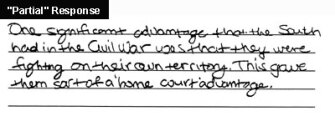 "Partial" Response
One significant advantage that the South
had in the Civil War was that they were
fighting on their own territory. This gave
them sort of a home court advantage.